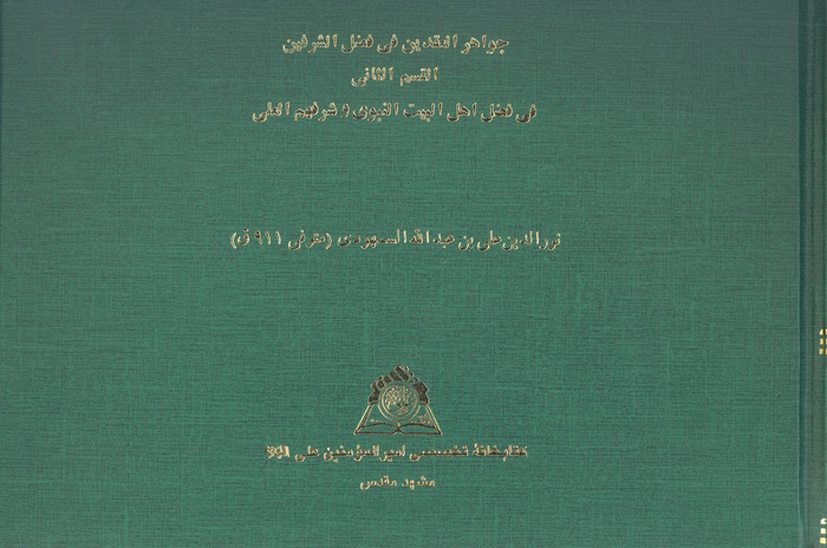 جواهر العقدين في فضل الشرفين
القسم الثاني
في فضل اهل البيت النبوي و شرفهم العلي
نورالدين علي بن عبدالله السمهودي (متوفى ٩١١ ق)
كتابخانهٔ تخصصى اميرالمؤمنين على
مشهد مقدس